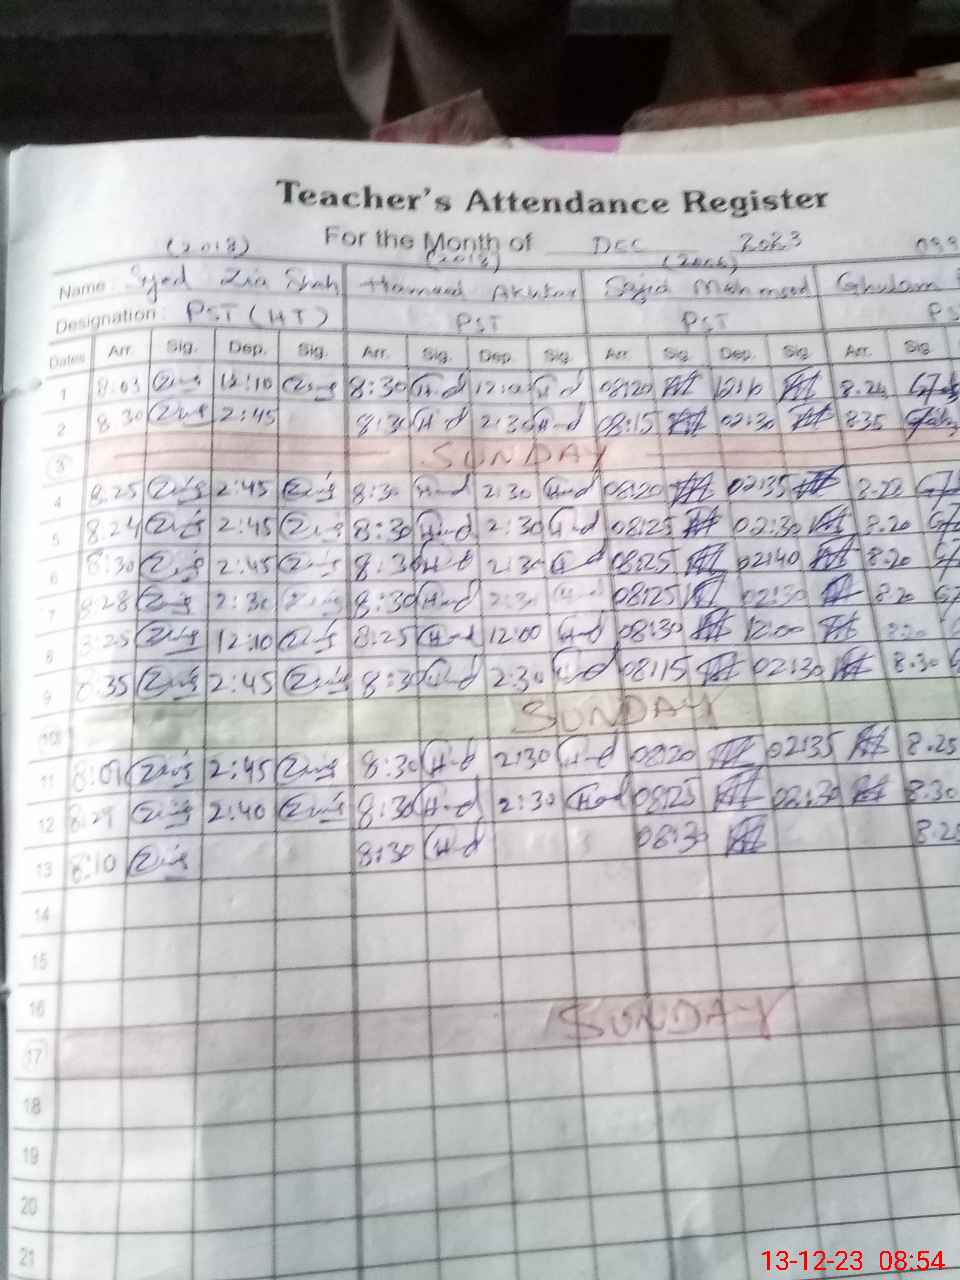 Teacher's Attendance Register
For the Month of DEC 2023
(2018) (2018)
Name: Syed Zia Shah Hameed Akhtar Sajid Mehmood Ghulam
Designation: PST (HT) PST PST PS
Dates Arr. Sig. Dep. Sig. Arr. Sig. Dep. Sig. Arr. Sig. Dep. Sig. Arr. Sig.
1 8:01 12:10 8:30 08:20 8.24
2 8.30 2:45 8:30 2:30 08:15 02:30 8.35
3 SUNDAY
4 8.25 2:45 8:30 2:30 08:20 02:35
5 8.24 2:45 8:30 2:30 08:25 02:30 8.20
6 8:30 2:45 8:30 2:30 08:25 02:40 8.20
7 8:28 2:30 8:30 2:30 08:25 02:30 8.20
8 8:25 12:10 8:25 12:00 08:30 12:00
9 8:35 2:45 8:30 2:30 08:15 02:30 8.30
10 SUNDAY
11 8:09 2:45 8:30 2:30 08:20 02:35 8.25
12 8:29 2:40 8:30 2:30 08:25 02:30 8.30
13 8:10 8:30 08:30
14
15
16
17 SUNDAY
18
19
20
21
13-12-23 08:54